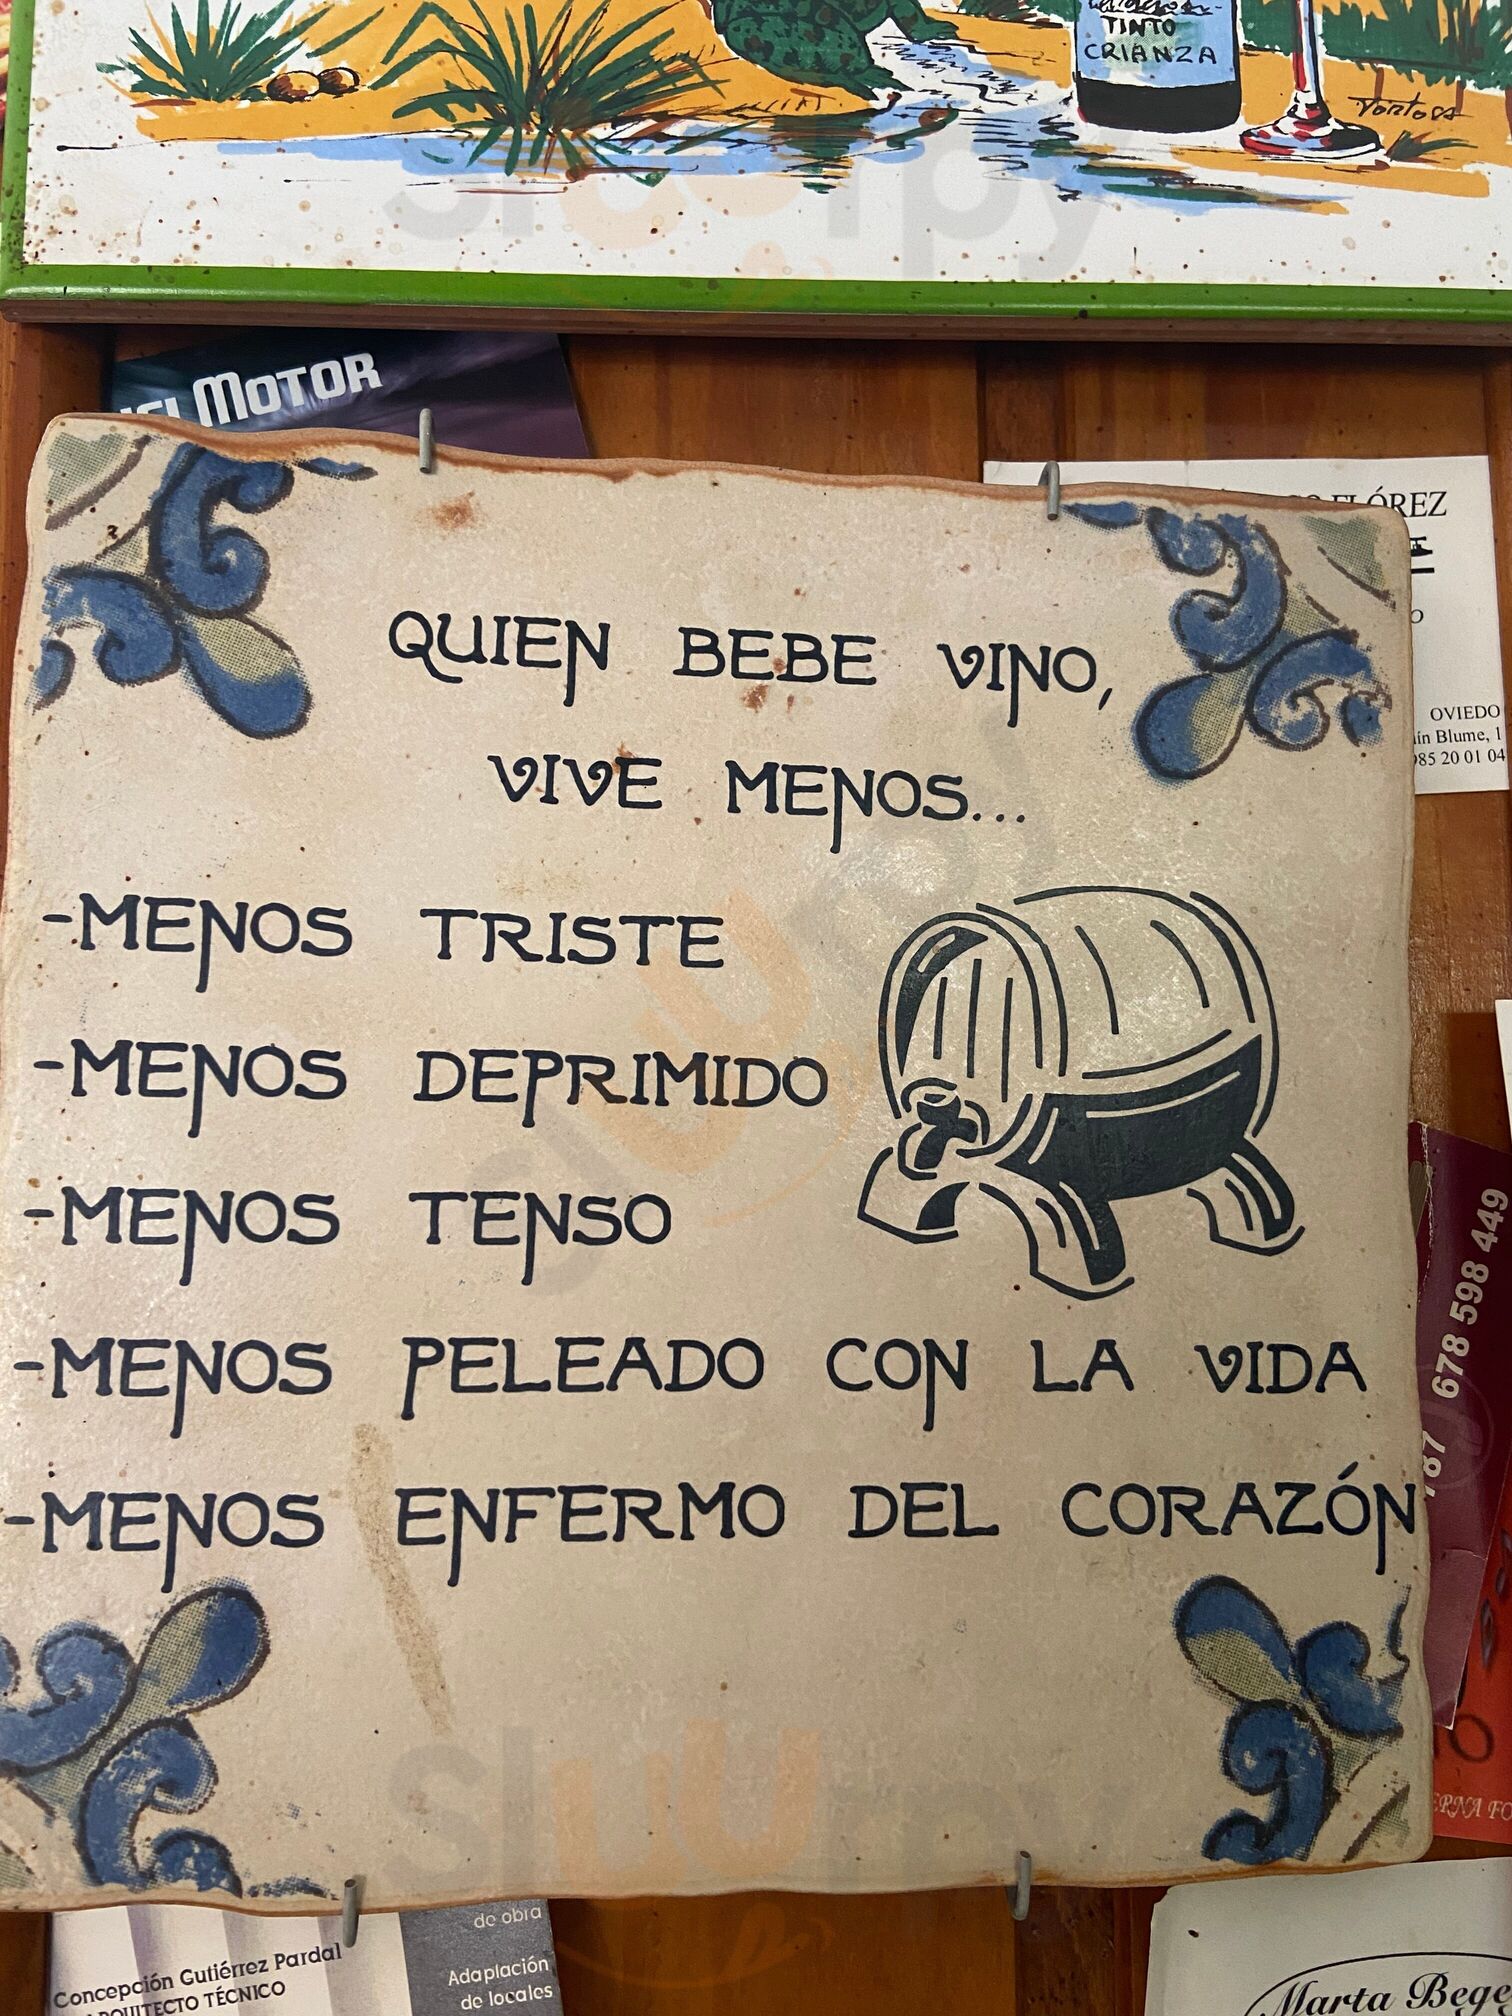 TINTO
CRIANZA
Tortosa
MOTOR
FLÓREZ
OVIEDO
Blume, 1
985 20 01 04
QUIEN BEBE VINO,
VIVE MENOS...
-MENOS TRISTE
-MENOS DEPRIMIDO
-MENOS TENSO
-MENOS PELEADO CON LA VIDA
-MENOS ENFERMO DEL CORAZÓN
678 598 449
de obra
Adaplación
de locales
Concepción Gutiérrez Pardal
ARQUITECTO TÉCNICO
Marta Bege
sluurpy
sluurpy
sluurpy